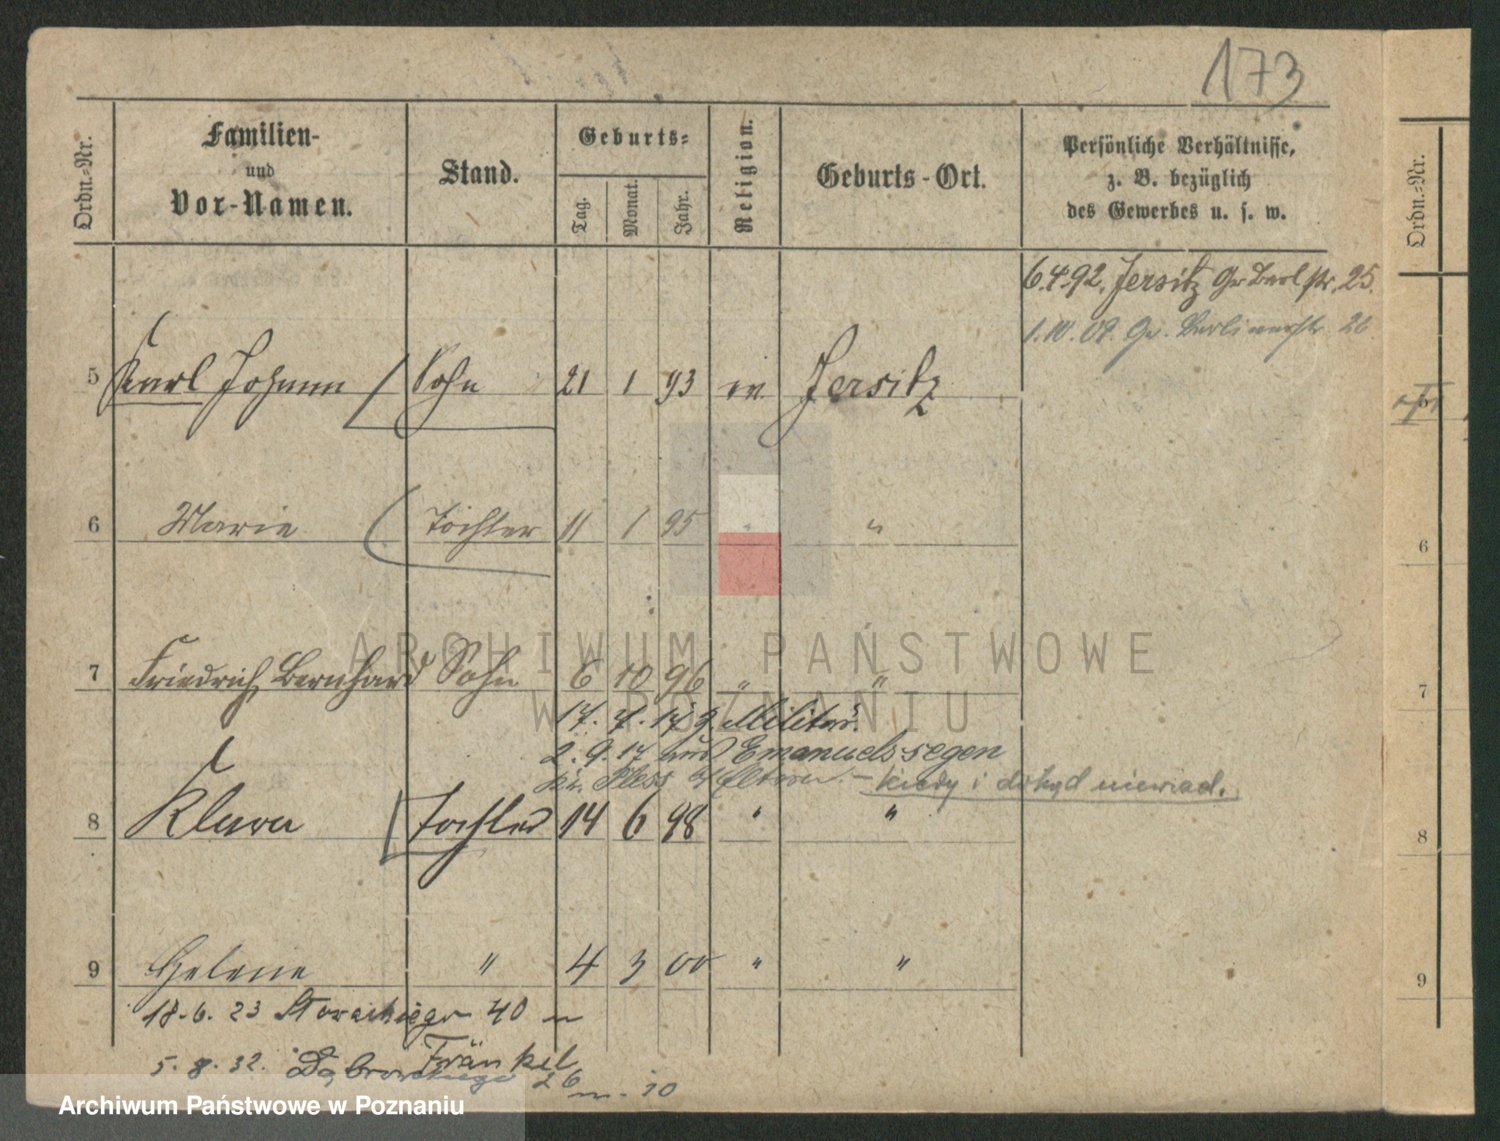 173
Ordn.-Nr.
Familien-
und
Vor-Namen.
Stand.
Geburts-
Tag.
Monat.
Jahr.
Religion.
Geburts-Ort.
Persönliche Verhältnisse,
z. B. bezüglich
des Gewerbes u. s. w.
Ordn.-Nr.
6.4.92. Jersitz Gr Berl str. 25.
1.10.09. Gr. Berlinerstr. 26
5 Karl Johann Sohn 21 1 93 ev Jersitz
6 Marie Tochter 11 1 95 " "
6
7 Friedrich Bernhard Sohn 6 10 96 " "
7
17. 7. 17 z. Militär.
2. 9. 17 aus Emanuelssegen
Kr. Pless z/ Eltern. - kiedy i dokąd niewiad.
8 Klara Tochter 14 6 98 " "
8
9 Helene " 4 3 00 " "
9
18.6.23 40
Fränkel
5.8.32. Dąbrowskiego 26 m. 10
ARCHIWUM PAŃSTWOWE
W POZNANIU
Archiwum Państwowe w Poznaniu